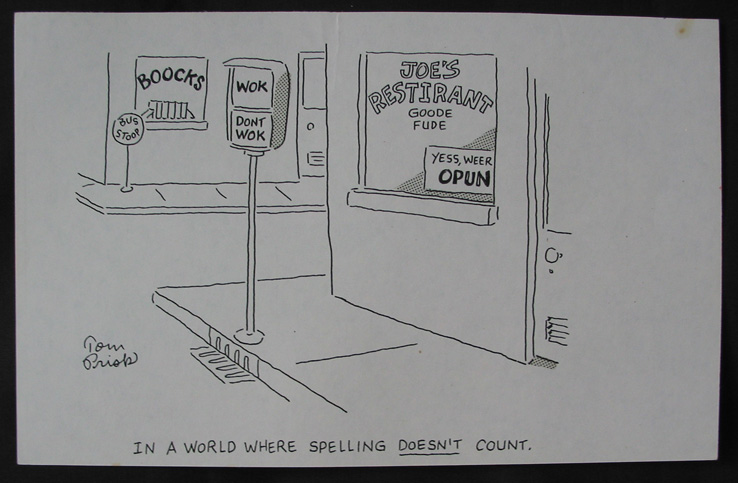 BOOCKS
BUS
STOOP
WOK
DONT
WOK
JOE'S
RESTIRANT
GOODE
FUDE
YESS, WEER
OPUN
Tom
Prisk
IN A WORLD WHERE SPELLING DOESN'T COUNT.